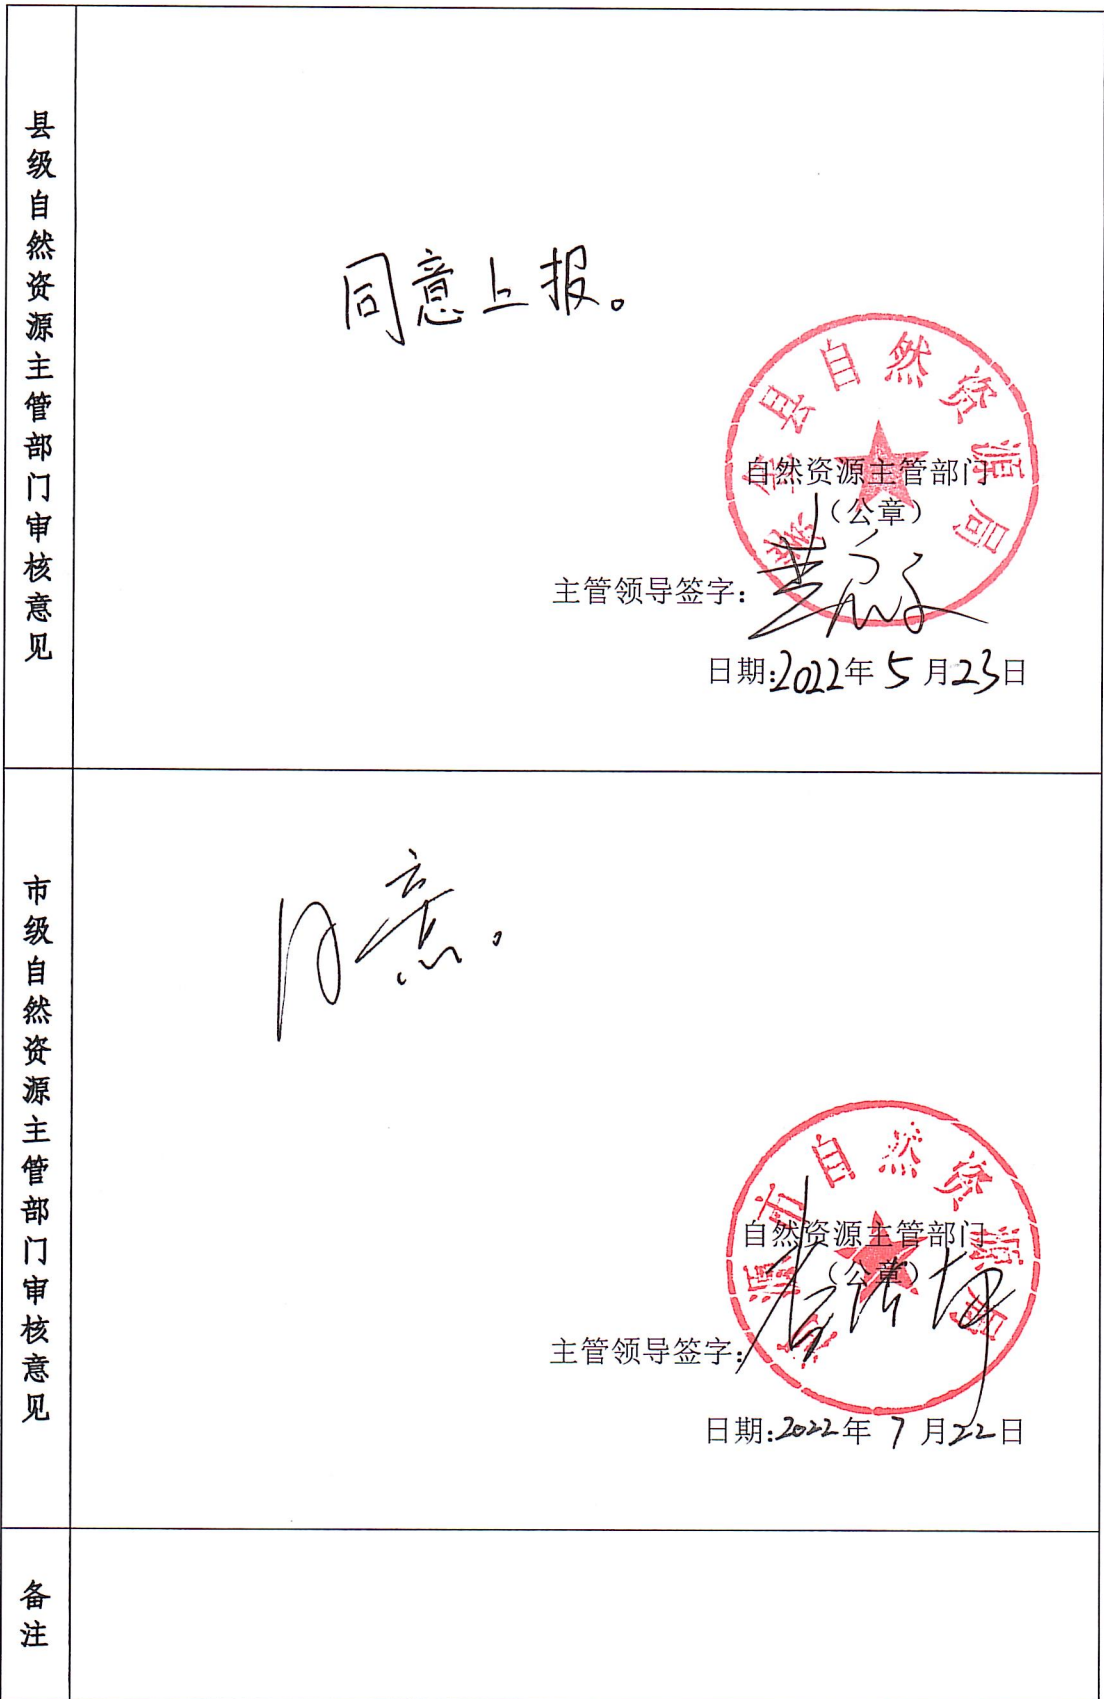 县级自然资源主管部门审核意见
同意上报。
紫金县自然资源局
自然资源主管部门
（公章）
主管领导签字：
日期：2022年 5 月23日
市级自然资源主管部门审核意见
同意。
河源市自然资源局
自然资源主管部门
（公章）
主管领导签字：
日期：2022年 7 月22日
备注